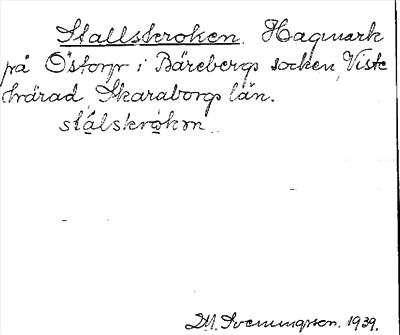 Stallskroken. Hagmark
på Östorp i Bärebergs socken, Viste
härad, Skaraborgs län.
stálskrókən.
M. Svenungsson. 1939.